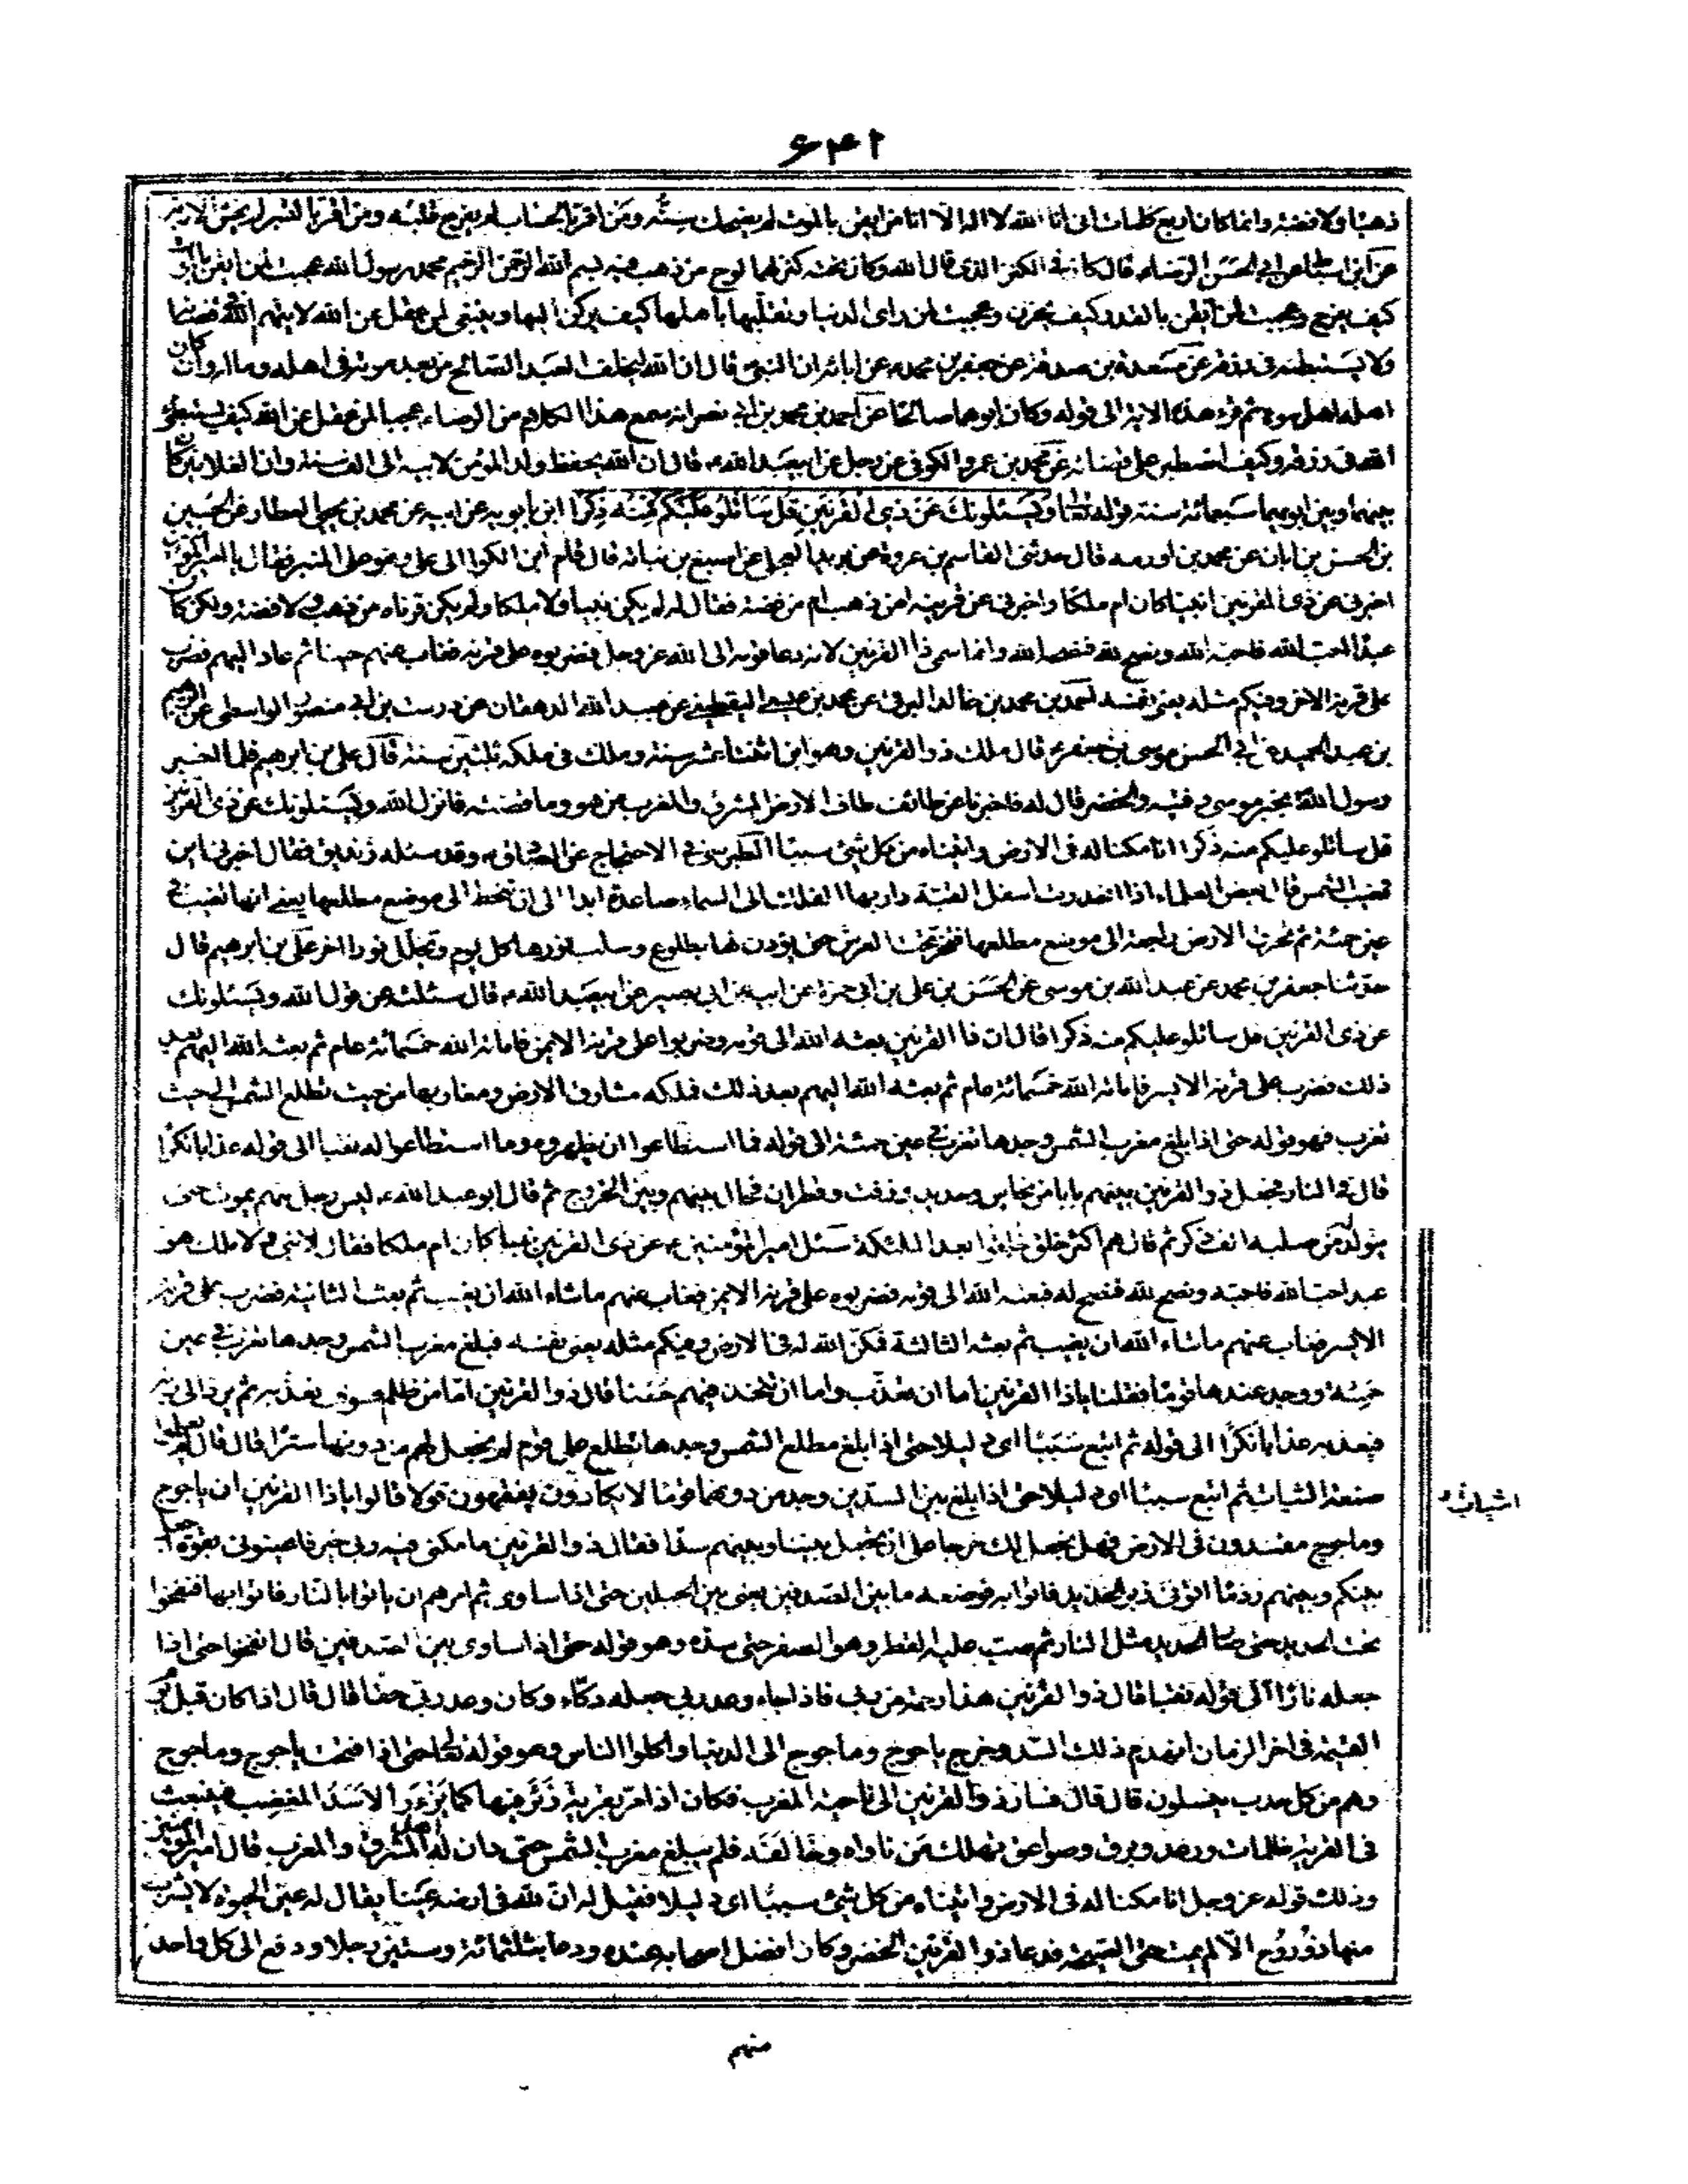 ۶۴۱
ذهبا ولا فضة وانما كان اربع كلمات انى انا الله لا اله الا انا من ايقن بالموت لم يضحك سنه ومن اقر بالحساب لم يفرح قلبه ومن اقر بالقدر لم يخش الا ربه
عن ابن اسباط عن ابى الحسن الرضاء قال كان فى الكنز الذى قال الله وكان تحته كنز لهما لوح من ذهب فيه بسم الله الرحمن الرحيم محمد رسول الله عجبت لمن ايقن بالموت
كيف يفرح وعجبت لمن ايقن بالقدر كيف يحزن وعجبت لمن راى الدنيا وتقلبها باهلها كيف يركن اليها وينبغى لمن عقل عن الله لا يتهم الله فى قضائه
ولا يستبطئه فى رزقه عن مسعدة بن صدقة عن جعفر بن محمد عن ابائه ان النبى قال ان الله ليخلف العبد الصالح من بعد موته فى اهله وماله وان كان
اهله اهل سوء ثم قرء هذه الاية الى قوله وكان ابوهما صالحا عن احمد بن محمد بن ابى نصر انه سمع هذا الكلام من الرضاء عجبا لمن عقل عن الله كيف يستبطئ
الله فى رزقه وكيف اصطبر على قضائه عن محمد بن عمرو الكوفى عن رجل عن ابيعبد الله قال ان الله يحفظ ولد المؤمن لابيه الى الف سنة وان الغلامين كان
بينهما وبين ابويهما سبعمائة سنة قوله تعالى ويسئلونك عن ذى القرنين قل ساتلو عليكم منه ذكرا ابن بابويه عن ابيه عن محمد بن يحيى العطار عن الحسين
بن الحسن بن ابان عن محمد بن اورمه قال حدثنى القاسم بن عروة عن بريد العجلى عن اصبغ بن نباته قال قام ابن الكوا الى على وهو على المنبر فقال يا امير المؤمنين
اخبرنى عن ذى القرنين انبيا كان ام ملكا واخبرنى عن قرنيه امن ذهب ام من فضة فقال له لم يكن نبيا ولا ملكا ولم يكن قرناه من ذهب ولا فضة ولكن كان
عبدا احب الله فاحبه الله ونصح لله فنصحه الله وانما سمى ذا القرنين لانه دعا قومه الى الله عز وجل فضربوه على قرنه فغاب عنهم حينا ثم عاد اليهم فضرب
على قرنه الاخر وفيكم مثله يعنى نفسه احمد بن محمد بن خالد البرقى عن محمد بن عيسى اليقطينى عن عبيد الله الدهقان عن درست بن ابى منصور الواسطى عن ابرهيم
بن عبد الحميد عن ابى الحسن موسى بن جعفر قال ملك ذو القرنين وهو ابن اثنتا عشر سنة وملك فى ملكه ثلثين سنة قال على بن ابرهيم فلما اخبر
رسول الله بخبر موسى وفتيه والخضر قال له فاخبرنا عن طائف طاف الارض المشرق والمغرب من هو وما قصته فانزل الله ويسئلونك عن ذى القرنين
قل ساتلو عليكم منه ذكرا انا مكنا له فى الارض واتيناه من كل شئ سببا الطبرسى فى الاحتجاج عن الصادق وقد سئله زنديق فقال اخبرنى اين
تغيب الشمس قال بعض العلماء اذا انحدرت اسفل القبة دار بها الفلك الى السماء صاعدة ابدا الى ان تنحط الى موضع مطلعها يعنى انها تغيب فى
عين حمئة ثم تخرق الارض راجعة الى موضع مطلعها فتخر تحت العرش حتى يؤذن لها بطلوع وسلب نورها كل يوم وتجلل نورا اخر على بن ابرهيم قال
حدثنا جعفر بن محمد عن عبد الله بن موسى عن الحسن بن على بن ابى حمزة عن ابيه عن ابى بصير عن ابيعبد الله قال سئلته عن قول الله ويسئلونك
عن ذى القرنين قل ساتلو عليكم منه ذكرا قال ان ذا القرنين بعثه الله الى قومه وضربوا على قرنه الايمن فاماته الله خمسمائة عام ثم بعثه الله اليهم بعد
ذلك فضرب على قرنه الايسر فاماته الله خمسمائة عام ثم بعثه الله اليهم بعد ذلك فملكه مشارق الارض ومغاربها من حيث تطلع الشمس الى حيث
تغرب فهو قوله حتى اذا بلغ مغرب الشمس وجدها تغرب فى عين حمئة الى قوله فما استطاعوا ان يظهروه وما استطاعوا له نقبا الى قوله عذابا نكرا
قال فى النار فجعل ذو القرنين بينهم بابا من نحاس وحديد وزفت وقطران فحال بينهم وبين الخروج ثم قال ابو عبد الله ليس رجل منهم يموت حتى
يولد من صلبه الف ذكر ثم قال هم اكثر خلق خلقوا بعد الملئكة سئل امير المؤمنين عن ذى القرنين نبيا كان ام ملكا فقال لا نبى ولا ملك هو
عبد احب الله فاحبه ونصح لله فنصح له فبعثه الله الى قومه فضربوه على قرنه الايمن فغاب عنهم ما شاء الله ان يغيب ثم بعثه الثانية فضرب على قرنه
الايسر فغاب عنهم ما شاء الله ان يغيب ثم بعثه الثالثة فمكن الله له فى الارض وفيكم مثله يعنى نفسه فبلغ مغرب الشمس وجدها تغرب فى عين
حمئة ووجد عندها قوما فقلنا ياذا القرنين اما ان تعذب واما ان تتخذ فيهم حسنا قال ذو القرنين اما من ظلم فسوف نعذبه ثم يرد الى ربه
فيعذبه عذابا نكرا الى قوله ثم اتبع سببا اى دليلا حتى اذا بلغ مطلع الشمس وجدها تطلع على قوم لم نجعل لهم من دونها سترا قال قال لم يعلموا
صنعة الثياب ثم اتبع سببا اى دليلا حتى اذا بلغ بين السدين وجد من دونهما قوما لا يكادون يفقهون قولا قالوا ياذا القرنين ان ياجوج
وماجوج مفسدون فى الارض فهل نجعل لك خرجا على ان تجعل بيننا وبينهم سدا فقال ذو القرنين ما مكنى فيه ربى خير فاعينونى بقوة اجعل
بينكم وبينهم ردما اتونى زبر الحديد فاتوا به فوضعه ما بين الصدفين يعنى بين الجبلين حتى اذا ساوى ثم امرهم ان ياتوا بالنار فاتوا بها فنفخوا
تحت الحديد حتى صار الحديد مثل النار ثم صب عليه القطر وهو الصفر حتى سده وهو قوله حتى اذا ساوى بين الصدفين قال انفخوا حتى اذا
جعله نارا الى قوله نقبا قال ذو القرنين هذا رحمة من ربى فاذا جاء وعد ربى جعله دكاء وكان وعد ربى حقا قال قال اذا كان قبل يوم
القيمة فى اخر الزمان انهدم ذلك السد وخرج ياجوج وماجوج الى الدنيا واكلوا الناس وهو قوله تعالى حتى اذا فتحت ياجوج وماجوج
وهم من كل حدب ينسلون قال قال فسار ذو القرنين الى ناحية المغرب فكان اذا مر بقرية زئر فيها كما يزءر الاسد المغضب فينبعث
فى القرية ظلمات ورعد وبرق وصواعق تهلك من ناواه وخالفه فلم يبلغ مغرب الشمس حتى دان له اهل المشرق والمغرب قال امير المؤمنين
وذلك قوله عز وجل انا مكنا له فى الارض واتيناه من كل شئ سببا اى دليلا فقيل له ان لله فى ارضه عينا يقال له عين الحيوة لا يشرب
منها ذو روح الا لم يمت حتى الصيحة فدعا ذو القرنين الخضر وكان افضل اصحابه عنده ودعا بثلثمائة وستين رجلا ودفع الى كل واحد
منهم